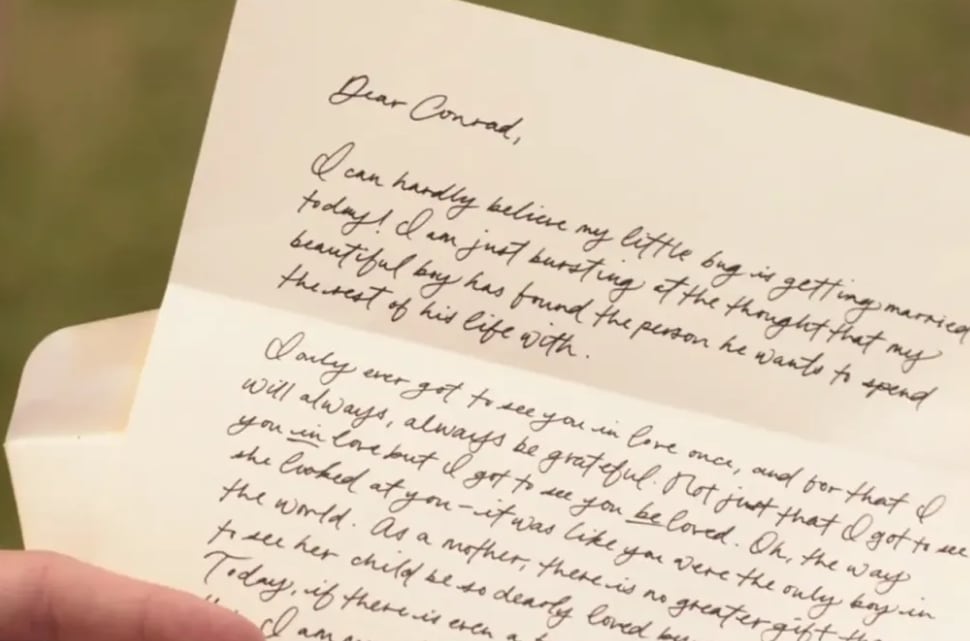 Dear Conrad,
I can hardly believe my little bug is getting married
today! I am just bursting at the thought that my
beautiful boy has found the person he wants to spend
the rest of his life with.
I only ever got to see you in love once, and for that I
will always, always be grateful. Not just that I got to see
you in love but I got to see you be loved. Oh, the way
she looked at you - it was like you were the only boy in
the world. As a mother, there is no greater gift
to see her child be so dearly loved by
Today, if there is even a
I am